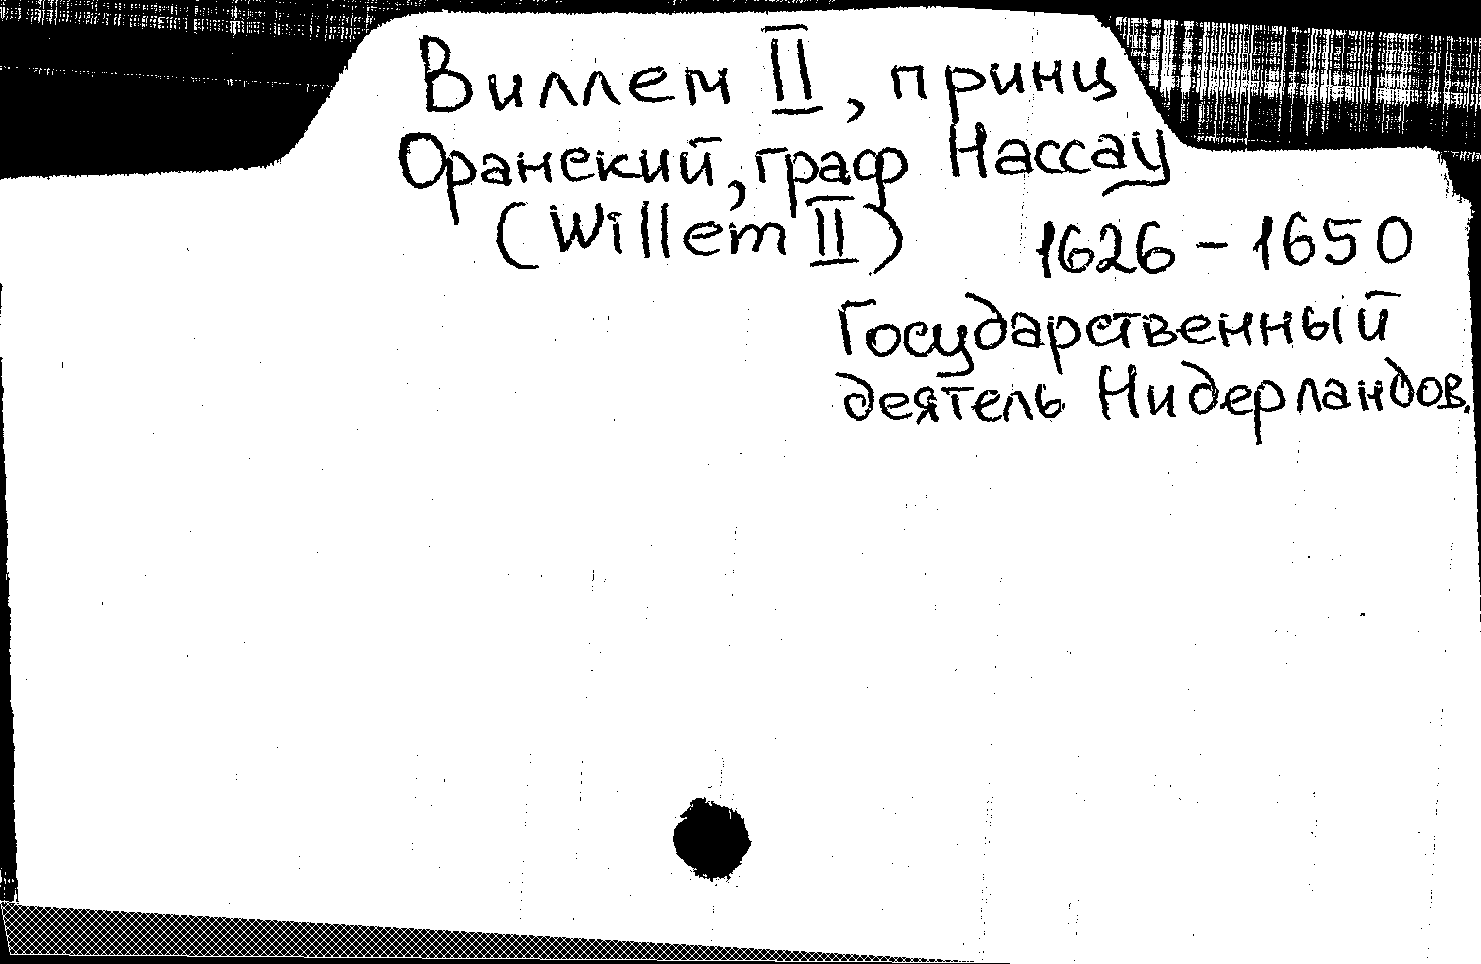 Виллем II, принц
Оранский, граф Нассау
(Willem II) 1626 - 1650
Государственный
деятель Нидерландов.